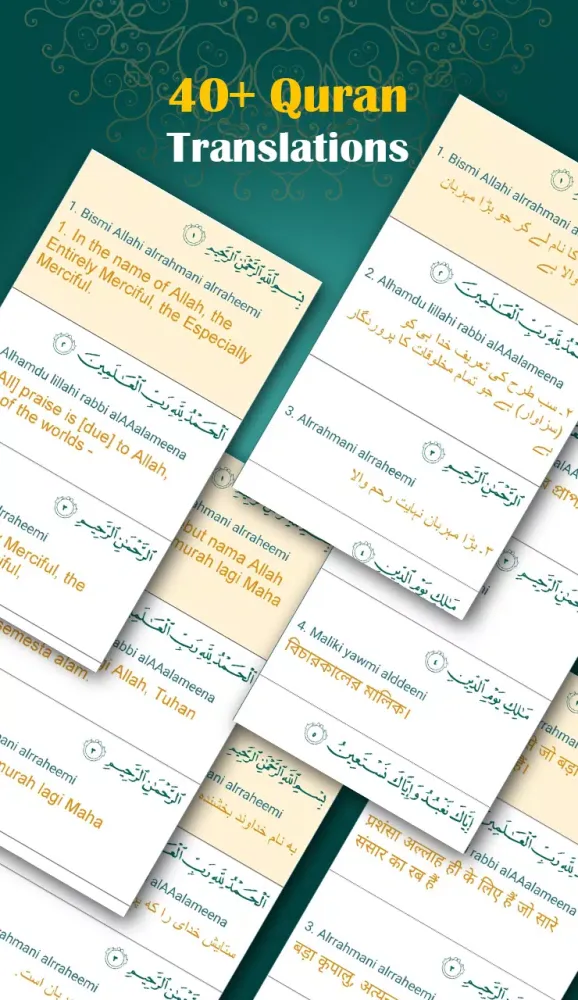 40+ Quran
Translations
بِسْمِ ٱللَّهِ ٱلرَّحْمَٰنِ ٱلرَّحِيمِ ١
1. Bismi Allahi alrrahmani alrraheemi
1. In the name of Allah, the
Entirely Merciful, the Especially
Merciful.
ٱلْحَمْدُ لِلَّهِ رَبِّ ٱلْعَٰلَمِينَ ٢
Alhamdu lillahi rabbi alAAalameena
All] praise is [due] to Allah,
of the worlds -
ٱلرَّحْمَٰنِ ٱلرَّحِيمِ ٣
alrraheemi
Merciful, the
١
1. Bismi Allahi alrrahmani a
کا نام لے کر جو بڑا مہربان
والا ہے
ٱلْحَمْدُ لِلَّهِ رَبِّ ٱلْعَٰلَمِينَ ٢
2. Alhamdu lillahi rabbi alAAalameena
٢. سب طرح کی تعریف خدا ہی کو
(سزاوار) ہے جو تمام مخلوقات کا پروردگار
ہے
ٱلرَّحْمَٰنِ ٱلرَّحِيمِ ٣
3. Alrrahmani alrraheemi
٣. بڑا مہربان نہایت رحم والا
مَٰلِكِ يَوْمِ ٱلدِّينِ ٤
١
rahmani alrraheemi
but nama Allah
murah lagi Maha
ٱلْحَمْدُ لِلَّهِ رَبِّ ٱلْعَٰلَمِينَ
rabbi alAAalameena
Allah, Tuhan
semesta alam.
ٱلرَّحْمَٰنِ ٱلرَّحِيمِ ٣
mani alrraheemi
murah lagi Maha
ٱلرَّحْمَٰنِ ٱلرَّحِيمِ ٣
مَٰلِكِ يَوْمِ ٱلدِّينِ ٤
4. Maliki yawmi alddeeni
বিচারকালের মালিক।
إِيَّاكَ نَعْبُدُ وَإِيَّاكَ نَسْتَعِينُ ٥
بِسْمِ ٱللَّهِ ٱلرَّحْمَٰنِ ٱلرَّحِيمِ
mani alrraheemi
به نام خداوند بخشنده
ٱلْحَمْدُ لِلَّهِ رَبِّ ٱلْعَٰلَمِينَ
alAAalameena
ستایش خدای را که
ٱلرَّحْمَٰنِ ٱلرَّحِيمِ ٣
ahmani alrraheemi
است.
alrraheemi
जो बड़ा
ٱلْعَٰلَمِينَ
rabbi alAAalameena
प्रशंसा अल्लाह ही के लिए हैं जो सारे
संसार का रब हैं
ٱلرَّحْمَٰنِ ٱلرَّحِيمِ ٣
3. Alrrahmani alrraheemi
बड़ा कृपालु,